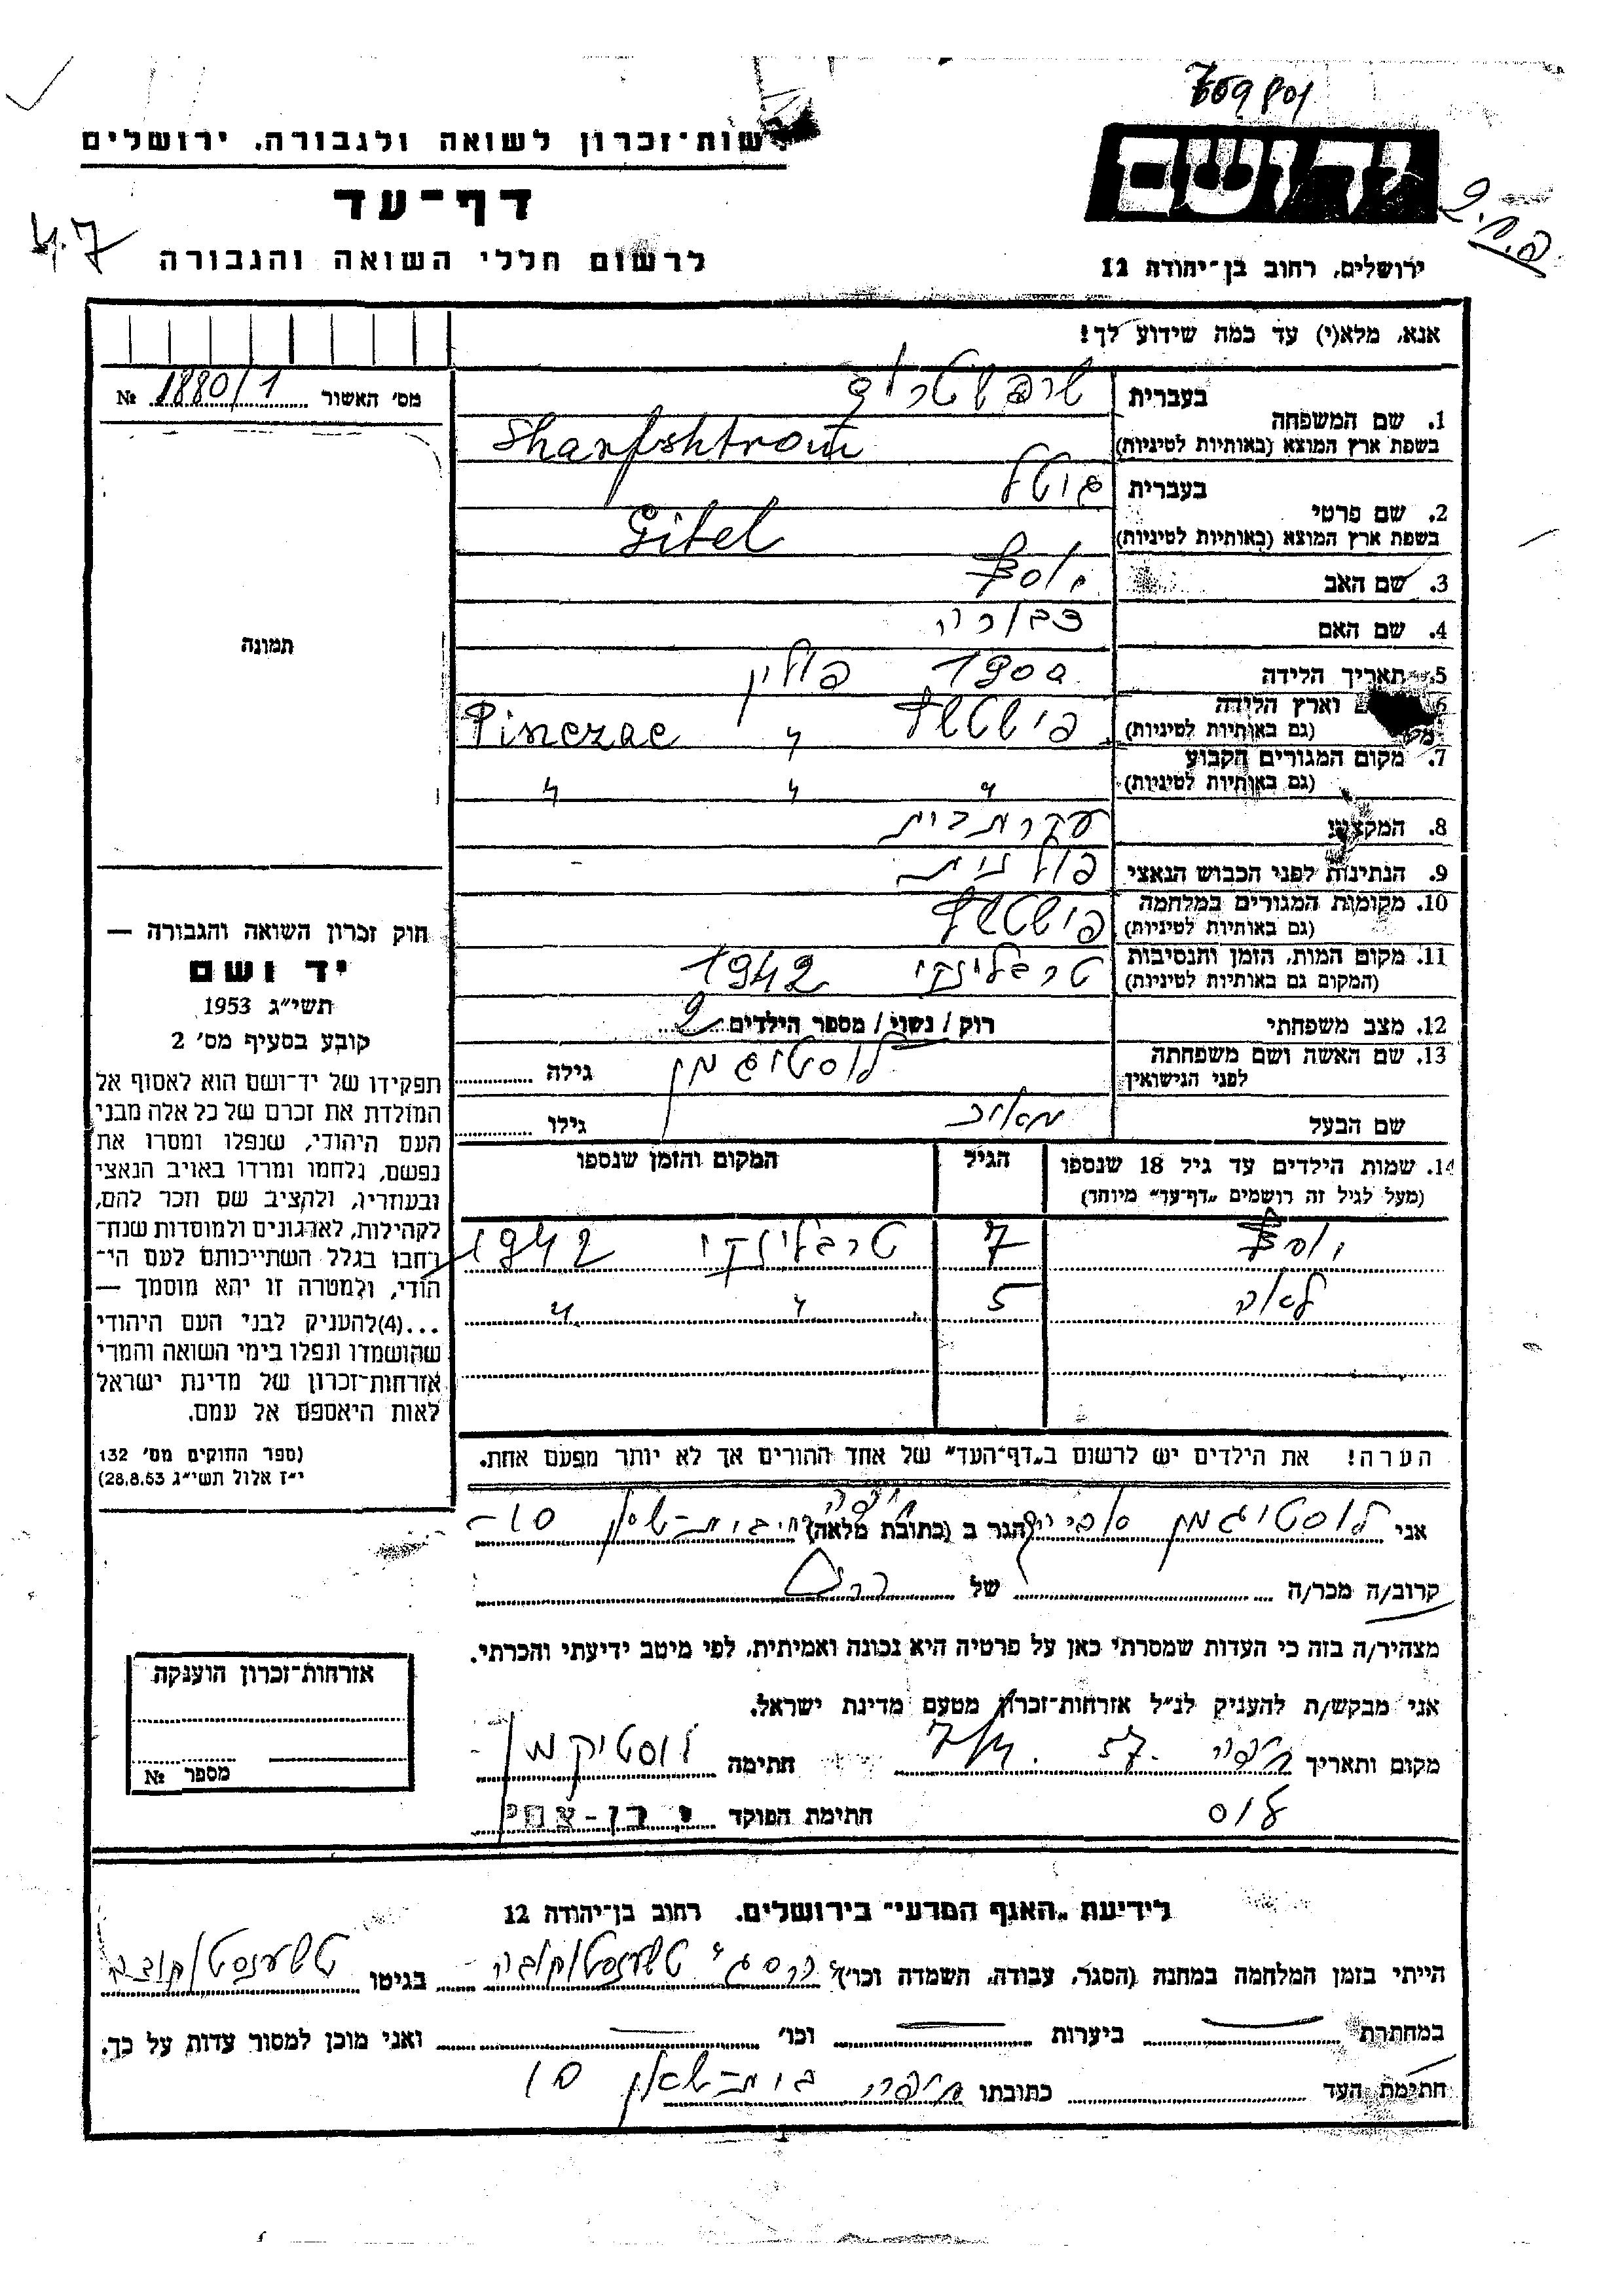 709801
רשות־זכרון לשואה ולגבורה. ירושלים
יד ושם
דף־עד
4.7
לרשום חללי השואה והגבורה
ירושלים, רחוב בן־יהודה 12
אנא, מלא(י) עד כמה שידוע לך!
מס׳ האשור 1880/1 №
תמונה
1. שם המשפחה
בעברית
בשפת ארץ המוצא (באותיות לטיניות)
Sharfshtrom
2. שם פרטי
בעברית גיטל
בשפת ארץ המוצא (באותיות לטיניות) Gitel
3. שם האב יוסף
4. שם האם דבורה
5. תאריך הלידה 1900 פולין
6. מקום וארץ הלידה
(גם באותיות לטיניות) Pinczac "
7. מקום המגורים הקבוע
(גם באותיות לטיניות) " " "
8. המקצוע עקרת בית
9. הנתינות לפני הכבוש הנאצי פולנית
10. מקומות המגורים במלחמה
(גם באותיות לטיניות)
11. מקום המות, הזמן והנסיבות
(המקום גם באותיות לטיניות) טרבלינקי 1942
12. מצב משפחתי רוק / נשוי / מספר הילדים 2
13. שם האשה ושם משפחתה
לפני הנישואין לוסטיגמן גילה
שם הבעל מאיר גילו
14. שמות הילדים עד גיל 18 שנספו
(מעל לגיל זה רושמים „דף־עד” מיוחד)
הגיל המקום והזמן שנספו
יוסף 7 טרבלינקי 1942
לאה 5 " "
הערה! את הילדים יש לרשום ב„דף־העד” של אחד ההורים אך לא יותר מפעם אחת.
חוק זכרון השואה והגבורה —
יד ושם
תשי״ג 1953
קובע בסעיף מס׳ 2
תפקידו של יד־ושם הוא לאסוף אל
המולדת את זכרם של כל אלה מבני
העם היהודי, שנפלו ומסרו את
נפשם, נלחמו ומרדו באויב הנאצי
ובעוזריו, ולהציב שם וזכר להם,
לקהילות, לארגונים ולמוסדות שנח־
רבו בגלל השתייכותם לעם הי־
הודי, ולמטרה זו יהא מוסמך —
...(4) להעניק לבני העם היהודי
שהושמדו ונפלו בימי השואה והמרי
אזרחות־זכרון של מדינת ישראל
לאות היאספם אל עמם.
(ספר החוקים מס׳ 132
י״ז אלול תשי״ג 28.8.53)
אני לוסטיגמן הגר ב (כתובת מלאה) חיפה 10
קרוב/ה מכר/ה של
מצהיר/ה בזה כי העדות שמסרתי כאן על פרטיה היא נכונה ואמיתית, לפי מיטב ידיעתי והכרתי.
אני מבקש/ת להעניק לנ״ל אזרחות־זכרון מטעם מדינת ישראל.
מקום ותאריך חיפה 57. 7/4 חתימה לוסטיקמן
חתימת הפוקד י. בן־צבי
אזרחות־זכרון הוענקה
מספר №
לידיעת „האגף המדעי” בירושלים. רחוב בן־יהודה 12
הייתי בזמן המלחמה במחנה (הסגר, עבודה, השמדה וכו׳) טשענסטוקובה בגיטו טשענסטוקובה
במחתרת ביערות וכו׳ ואני מוכן למסור עדות על כך.
חתימת העד כתובתו חיפה בית־שאן 10